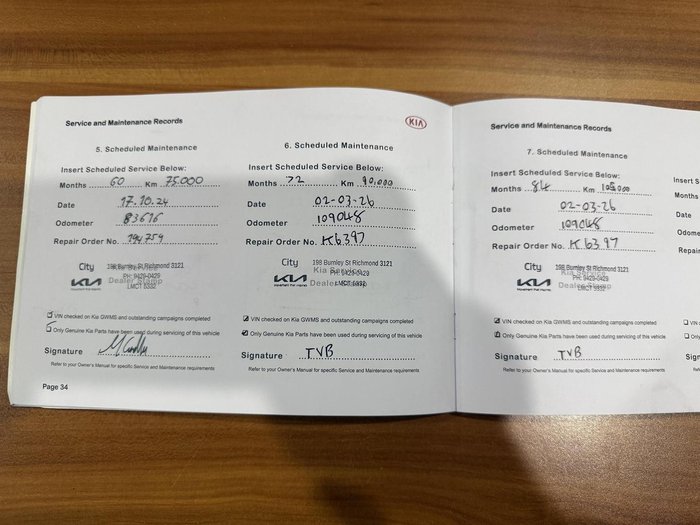 Service and Maintenance Records
KIA
5. Scheduled Maintenance
Insert Scheduled Service Below:
Months 60 Km 75000
Date 17.10.24
Odometer 83616
Repair Order No. 794759
City 198 Burnley St Richmond 3121
PH: 9429-0429
KIA Dealer Stamp
Movement that inspires LMCT 9332
VIN checked on Kia GWMS and outstanding campaigns completed
Only Genuine Kia Parts have been used during servicing of this vehicle
Signature
Refer to your Owner's Manual for specific Service and Maintenance requirements
Page 34
6. Scheduled Maintenance
Insert Scheduled Service Below:
Months 72 Km 90,000
Date 02-03-26
Odometer 109048
Repair Order No. K6397
City 198 Burnley St Richmond 3121
Kia Service
PH: 9429-0429
KIA Dealer Stamp
Movement that inspires LMCT 9332
VIN checked on Kia GWMS and outstanding campaigns completed
Only Genuine Kia Parts have been used during servicing of this vehicle
Signature TVB
Refer to your Owner's Manual for specific Service and Maintenance requirements
Service and Maintenance Records
7. Scheduled Maintenance
Insert Scheduled Service Below:
Months 84 Km 105,000
Date 02-03-26
Odometer 109048
Repair Order No. K6397
City 198 Burnley St Richmond 3121
Kia Service
PH: 9429-0429
KIA Dealer Stamp
Movement that inspires LMCT 9332
VIN checked on Kia GWMS and outstanding campaigns completed
Only Genuine Kia Parts have been used during servicing of this vehicle
Signature TVB
Refer to your Owner's Manual for specific Service and Maintenance requirements
Insert S
Months
Date
Odomet
Repair
VIN che
Only
Signat